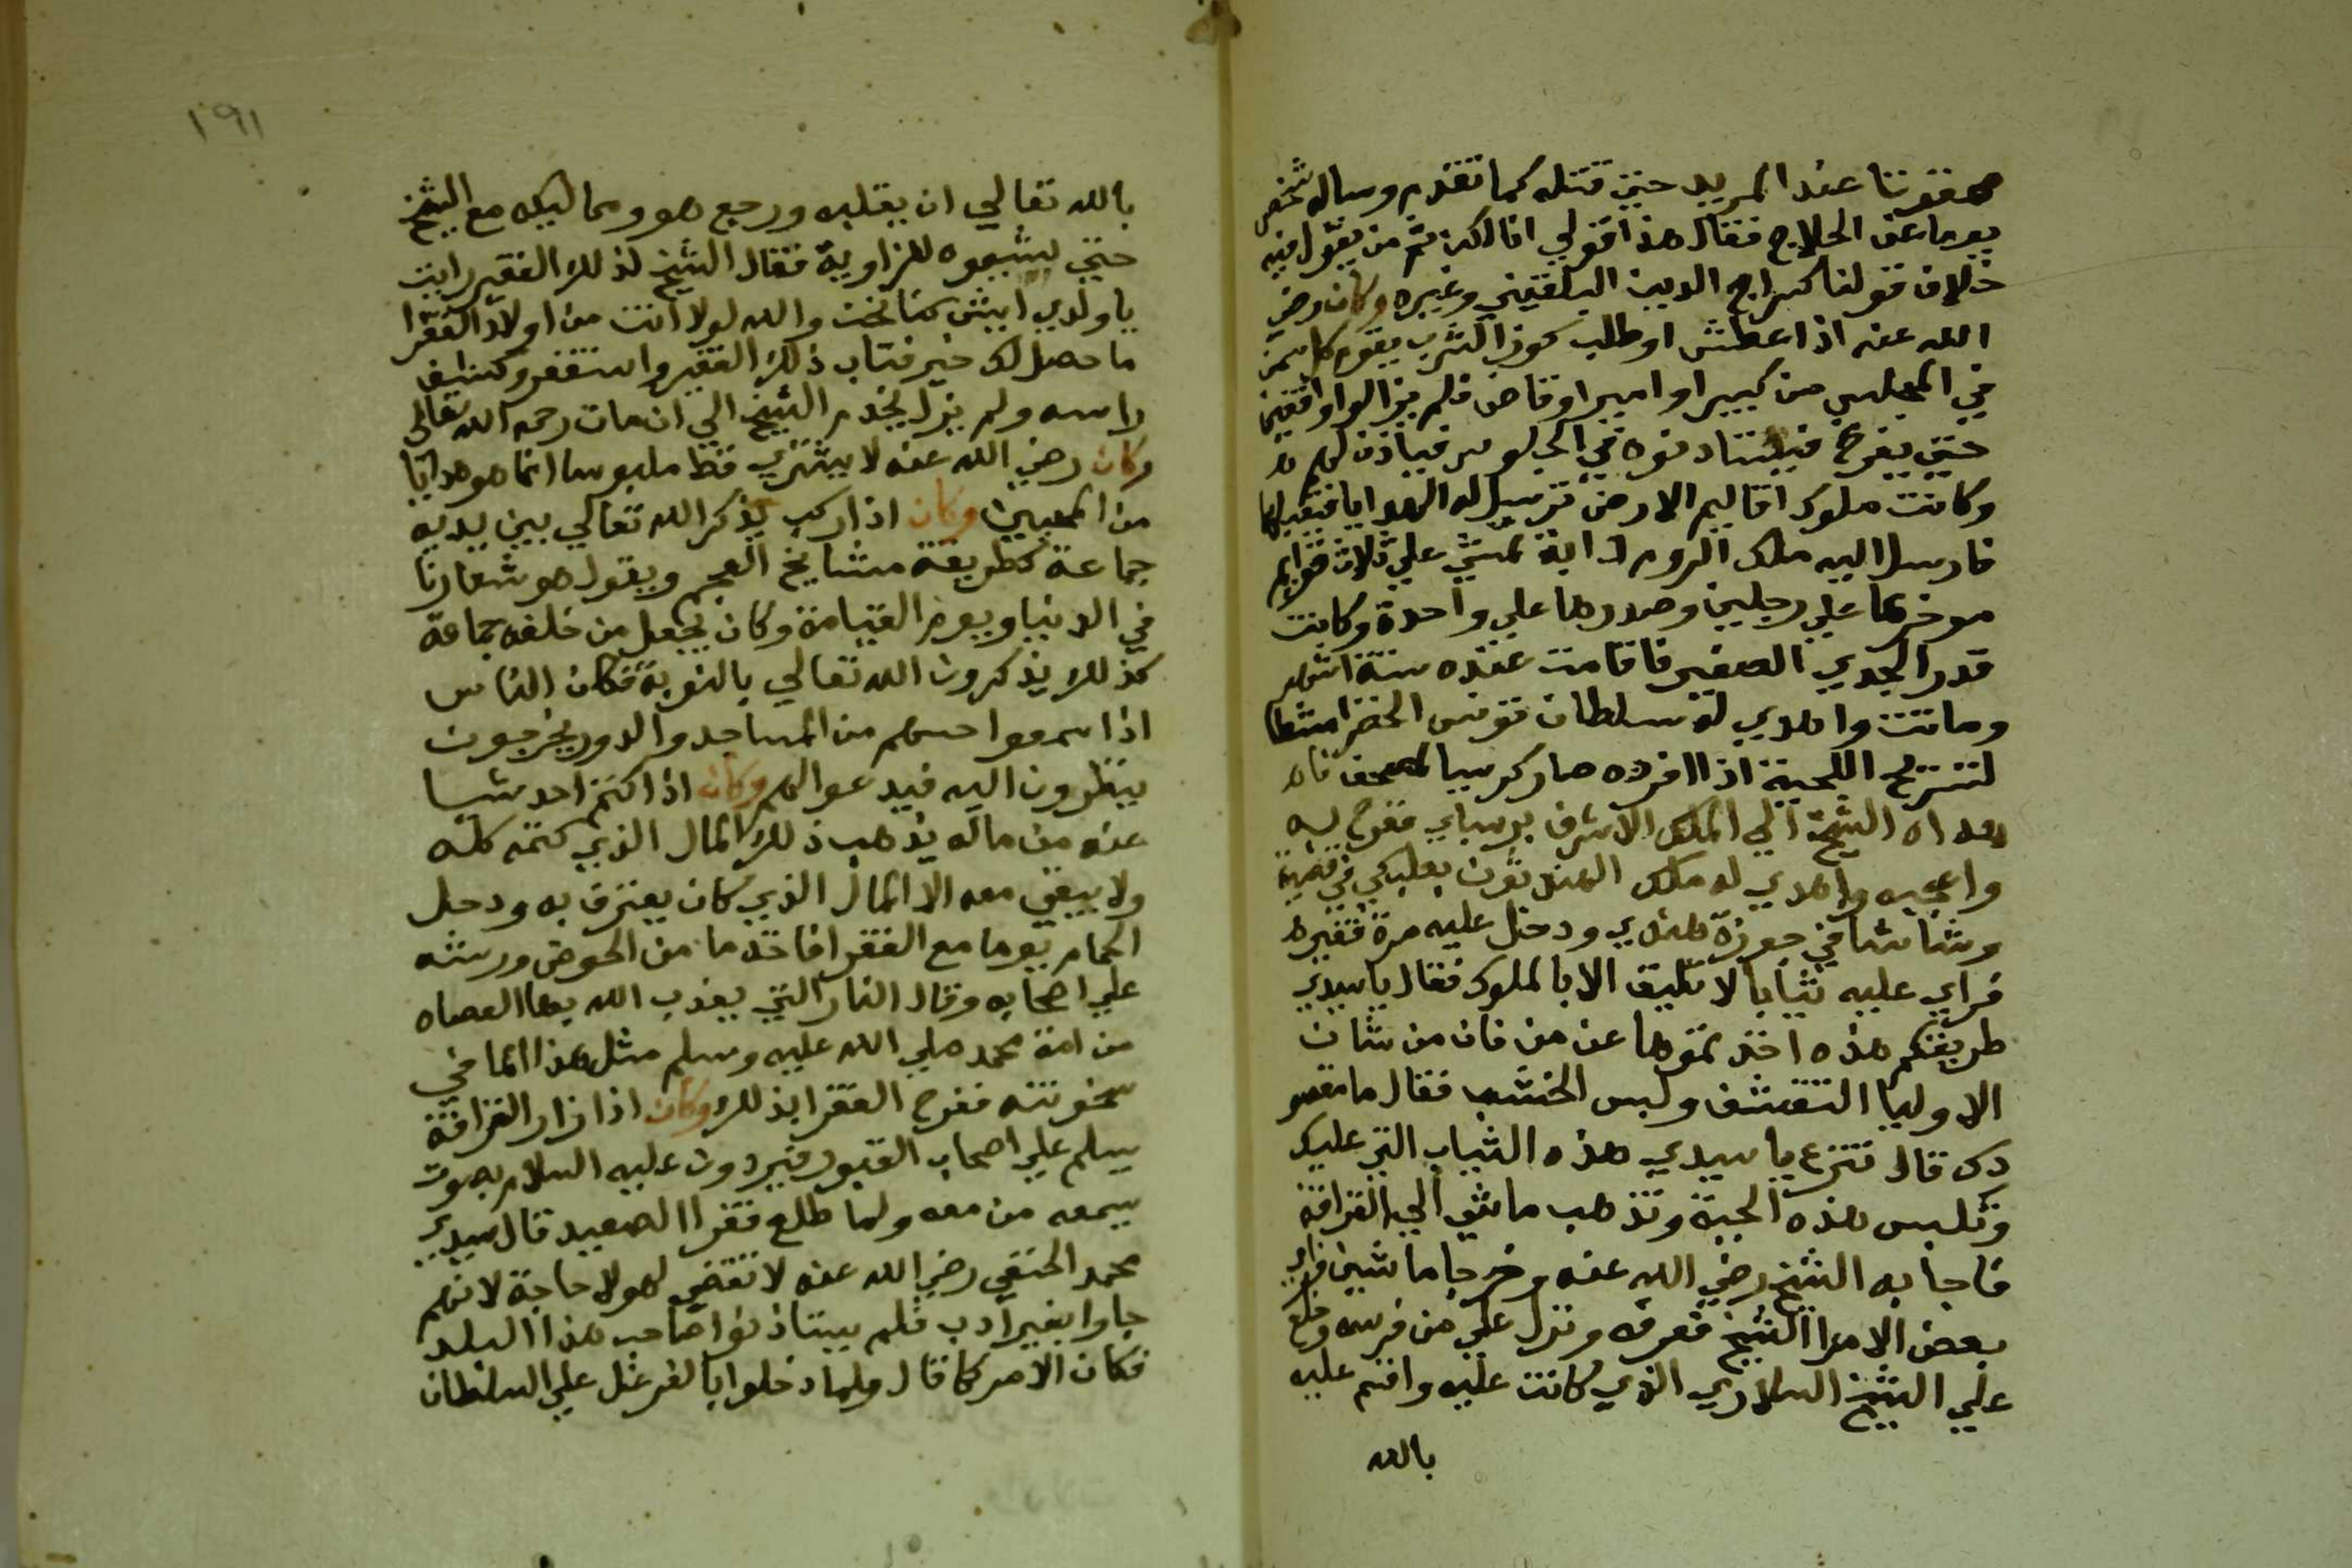 هفوتنا عند المريد حتي قتله كما تقدم وساله شخص
يوما عن الحلاج فقال هذا قولي انا لكن ثم من يقول فيه
خلاف قولنا كسراج الدين البلقيني وغيره وكان رضي
الله عنه اذا عطش او طلب كوز الشرب يقوم كل من
في المجلس من كبير او امير او قاض فلم يزالوا واقفين
حتي يفرغ فيستاذنوه في الجلوس فياذن لهم
وكانت ملوك اقاليم الارض ترسل له الهدايا فيقبلها
فارسل اليه ملك الروم دابة تمشي علي ثلاث قوايم
موخرها علي رجلين وصدرها علي واحدة وكانت
قدر الجدي الصغير فاقامت عنده ستة اشهر
وماتت واهدي له سلطان تونس الخضرا مشطا
لتسريح اللحية اذا افرده صار كرسيا لمصحف
هداه الشيخ الي الملك الاشرف برسباي ففرح به
واعجبه واهدي له ملك الهند ثوب بعلبكي في قصبة
وشاشا في جوزة هندي ودخل عليه مرة فقير
فراي عليه ثيابا لا تليق الا بالملوك فقال يا سيدي
طريقتكم هذه اخذتموها عن من فان من شان
الاوليا التقشف ولبس الخشب فقال ما مقصو
دك قال تنزع يا سيدي هذه الثياب التي عليك
وتلبس هذه الجبة وتذهب ماشي الي القرافة
فاجابه الشيخ رضي الله عنه وخرجا ماشين فراي
بعض الامرا الشيخ فعرفه ونزل علي من فرسه وخلع
علي الشيخ السلاري الذي كانت عليه واقسم عليه
بالله
١٩١
بالله تعالي ان يقلبه ورجع هو ومماليكه مع الشيخ
حتي يشيعوه للزاوية فقال الشيخ لذلك الفقير رايت
يا ولدي ايش كنا نحن والله لولا انت من اولاد الفقرا
ما حصل لك خير فتاب ذلك الفقير واستغفر وكشف
راسه ولم يزل يخدم الشيخ الي ان مات رحمه الله تعالي
وكان رضي الله عنه لا يشتري قط ملبوسا انما هو هدايا
من المحبين وكان اذا ركب يذكر الله تعالي بين يديه
جماعة كطريقة مشايخ العجم ويقول هو شعارنا
في الدنيا ويوم القيامة وكان يجعل من خلفه جماعة
كذلك يذكرون الله تعالي بالنوبة فكان الناس
اذا سمعوا حسهم من المساجد والدور يخرجون
ينظرون اليه فيدعوا لهم وكان اذا كتم احد شيا
عنه من ماله يذهب ذلك المال الذي كتمه كله
ولا يبقي معه الا المال الذي كان يعترف به ودخل
الحمام يوما مع الفقرا فاخذ ما من الحوض ورشه
علي اصحابه وقال النار التي يعذب الله بها العصاه
من امة محمد صلي الله عليه وسلم مثل هذا الما في
سخونته ففرح الفقرا بذلك وكان اذا زار القرافة
يسلم علي اصحاب القبور فيردون عليه السلام بصوت
يسمعه من معه ولما طلع فقرا الصعيد قال سيدي
محمد الحنفي رضي الله عنه لا تقضي لهولا حاجة لانهم
جاوا بغير ادب فلم يستاذنوا صاحب هذا البلد
فكان الامر كما قال فلما دخلوا بالفرغل علي السلطان